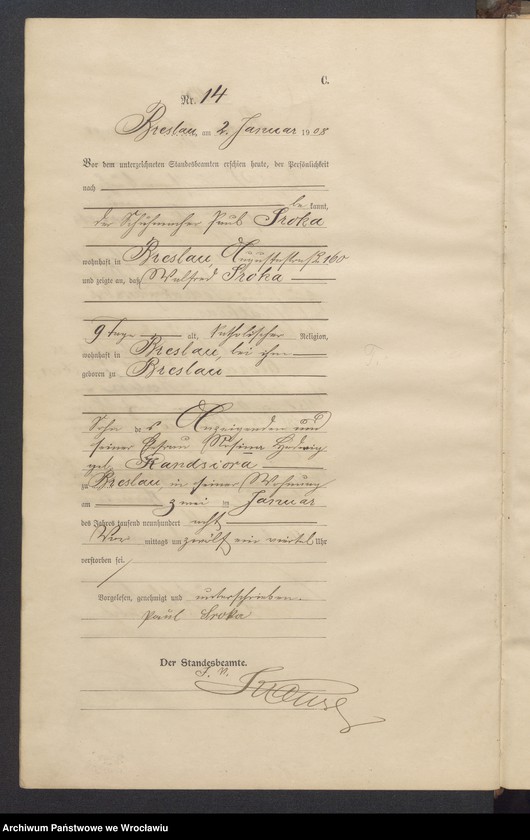 C.
Nr. 14
Breslau, am 2. Januar 1908
Vor dem unterzeichneten Standesbeamten erschien heute, der Persönlichkeit
nach
be kannt,
der Schuhmacher Paul Sroka
wohnhaft in Breslau, Auguststraße 160
und zeigte an, daß Walfred Sroka
9 Tage alt, katholischer Religion,
wohnhaft in Breslau, bei ihm
geboren zu Breslau
Sohn des Anzeigenden und
seiner Ehefrau Hedwig
geb. Kandziora
zu Breslau, in seiner Wohnung
am zwei ten Januar
des Jahres tausend neunhundert acht
Vor mittags um zwölf ein viertel Uhr
verstorben sei.
Vorgelesen, genehmigt und unterschrieben.
Paul Sroka
Der Standesbeamte.
J. V.
Archiwum Państwowe we Wrocławiu